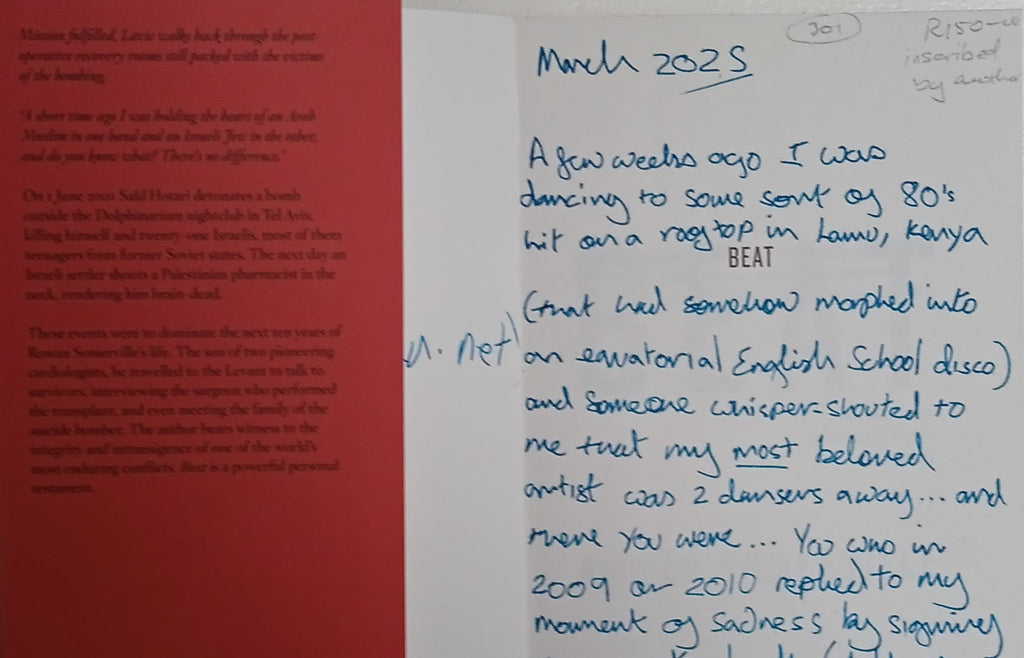 Mission fulfilled, Lavie walks back through the post-
operative recovery rooms still packed with the victims
of the bombing.
'A short time ago I was holding the heart of an Arab
Muslim in one hand and an Israeli Jew in the other,
and do you know what? There's no difference.'
On 1 June 2001 Saïd Hotari detonates a bomb
outside the Dolphinarium nightclub in Tel Aviv,
killing himself and twenty-one Israelis, most of them
teenagers from former Soviet states. The next day an
Israeli settler shoots a Palestinian pharmacist in the
neck, rendering him brain-dead.
These events were to dominate the next ten years of
Rowan Somerville's life. The son of two pioneering
cardiologists, he travelled to the Levant to talk to
survivors, interviewing the surgeon who performed
the transplant, and even meeting the family of the
suicide bomber. The author bears witness to the
integrity and intransigence of one of the world's
most enduring conflicts. Beat is a powerful personal
testament.
301
R150-00
inscribed
by autho
March 2025
A few weeks ago I was
dancing to some sort of 80's
hit on a rooftop in Lamu, Kenya
BEAT
(that had somehow morphed into
an equatorial English School disco)
and someone whisper-shouted to
me that my most beloved
artist was 2 dansers away... and
there you were... You who in
2009 or 2010 replied to my
moment of sadness by signing
. net